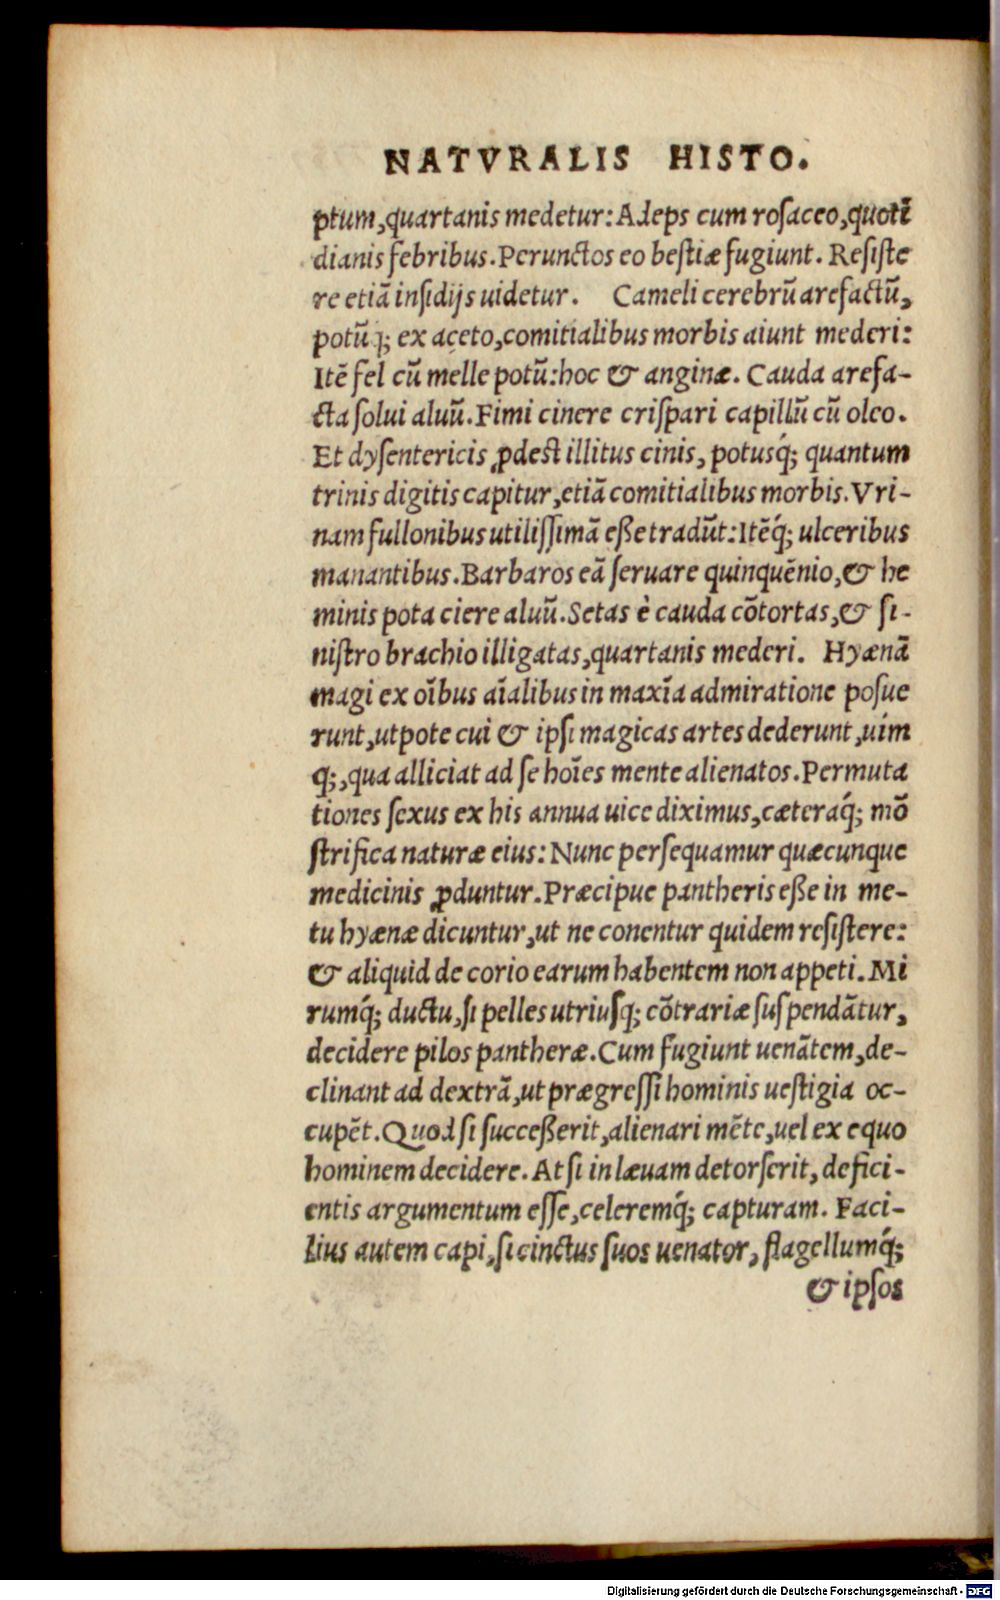 NATVRALIS HISTO.
ptum, quartanis medetur: Adeps cum rosaceo, quotī
dianis febribus. Perunctos eo bestiæ fugiunt. Resiste
re etiā insidijs uidetur. Cameli cerebrū arefactū,
potū q; ex aceto, comitialibus morbis aiunt mederi:
Itē fel cū melle potū: hoc & anginæ. Cauda arefa-
cta solui aluū. Fimi cinere crispari capillū cū oleo.
Et dysentericis ꝓdest illitus cinis, potusq́; quantum
trinis digitis capitur, etiā comitialibus morbis. Vri-
nam fullonibus utilissimā eße tradūt: Itēq́; ulceribus
manantibus. Barbaros eā seruare quinquēnio, & he
minis pota ciere aluū. Setas è cauda cōtortas, & si-
nistro brachio illigatas, quartanis mederi. Hyænā
magi ex oībus aīalibus in maxīa admiratione posue
runt, utpote cui & ipsi magicas artes dederunt, uim
q;, qua alliciat ad se hoīes mente alienatos. Permuta
tiones sexus ex his annua uice diximus, cæteraq́; mō
strifica naturæ eius: Nunc persequamur quæcunque
medicinis ꝓduntur. Præcipue pantheris eße in me-
tu hyænæ dicuntur, ut ne conentur quidem resistere:
& aliquid de corio earum habentem non appeti. Mi
rumq́; ductu, si pelles utriusq; cōtrariæ suspendātur,
decidere pilos pantheræ. Cum fugiunt uenātem, de-
clinant ad dextrā, ut prægressi hominis uestigia oc-
cupēt. Quod si succeßerit, alienari mēte, uel ex equo
hominem decidere. At si in læuam detorserit, defici-
entis argumentum esse, celeremq́; capturam. Faci-
lius autem capi, si cinctus suos uenator, flagellumq́;
& ipsos
Digitalisierung gefördert durch die Deutsche Forschungsgemeinschaft - DFG